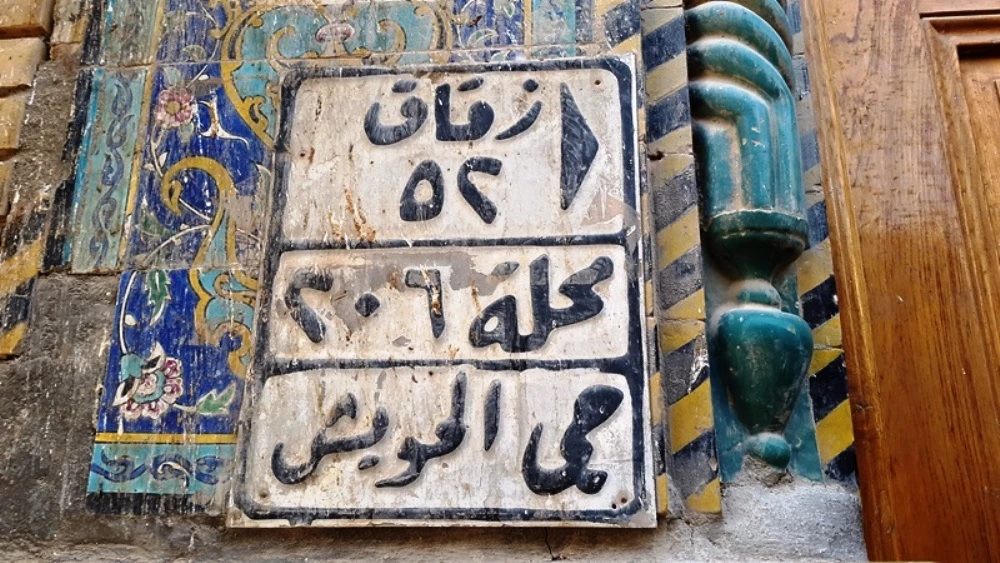 زقاق
٥٢
محلة ٢٠٦
حي الحويش